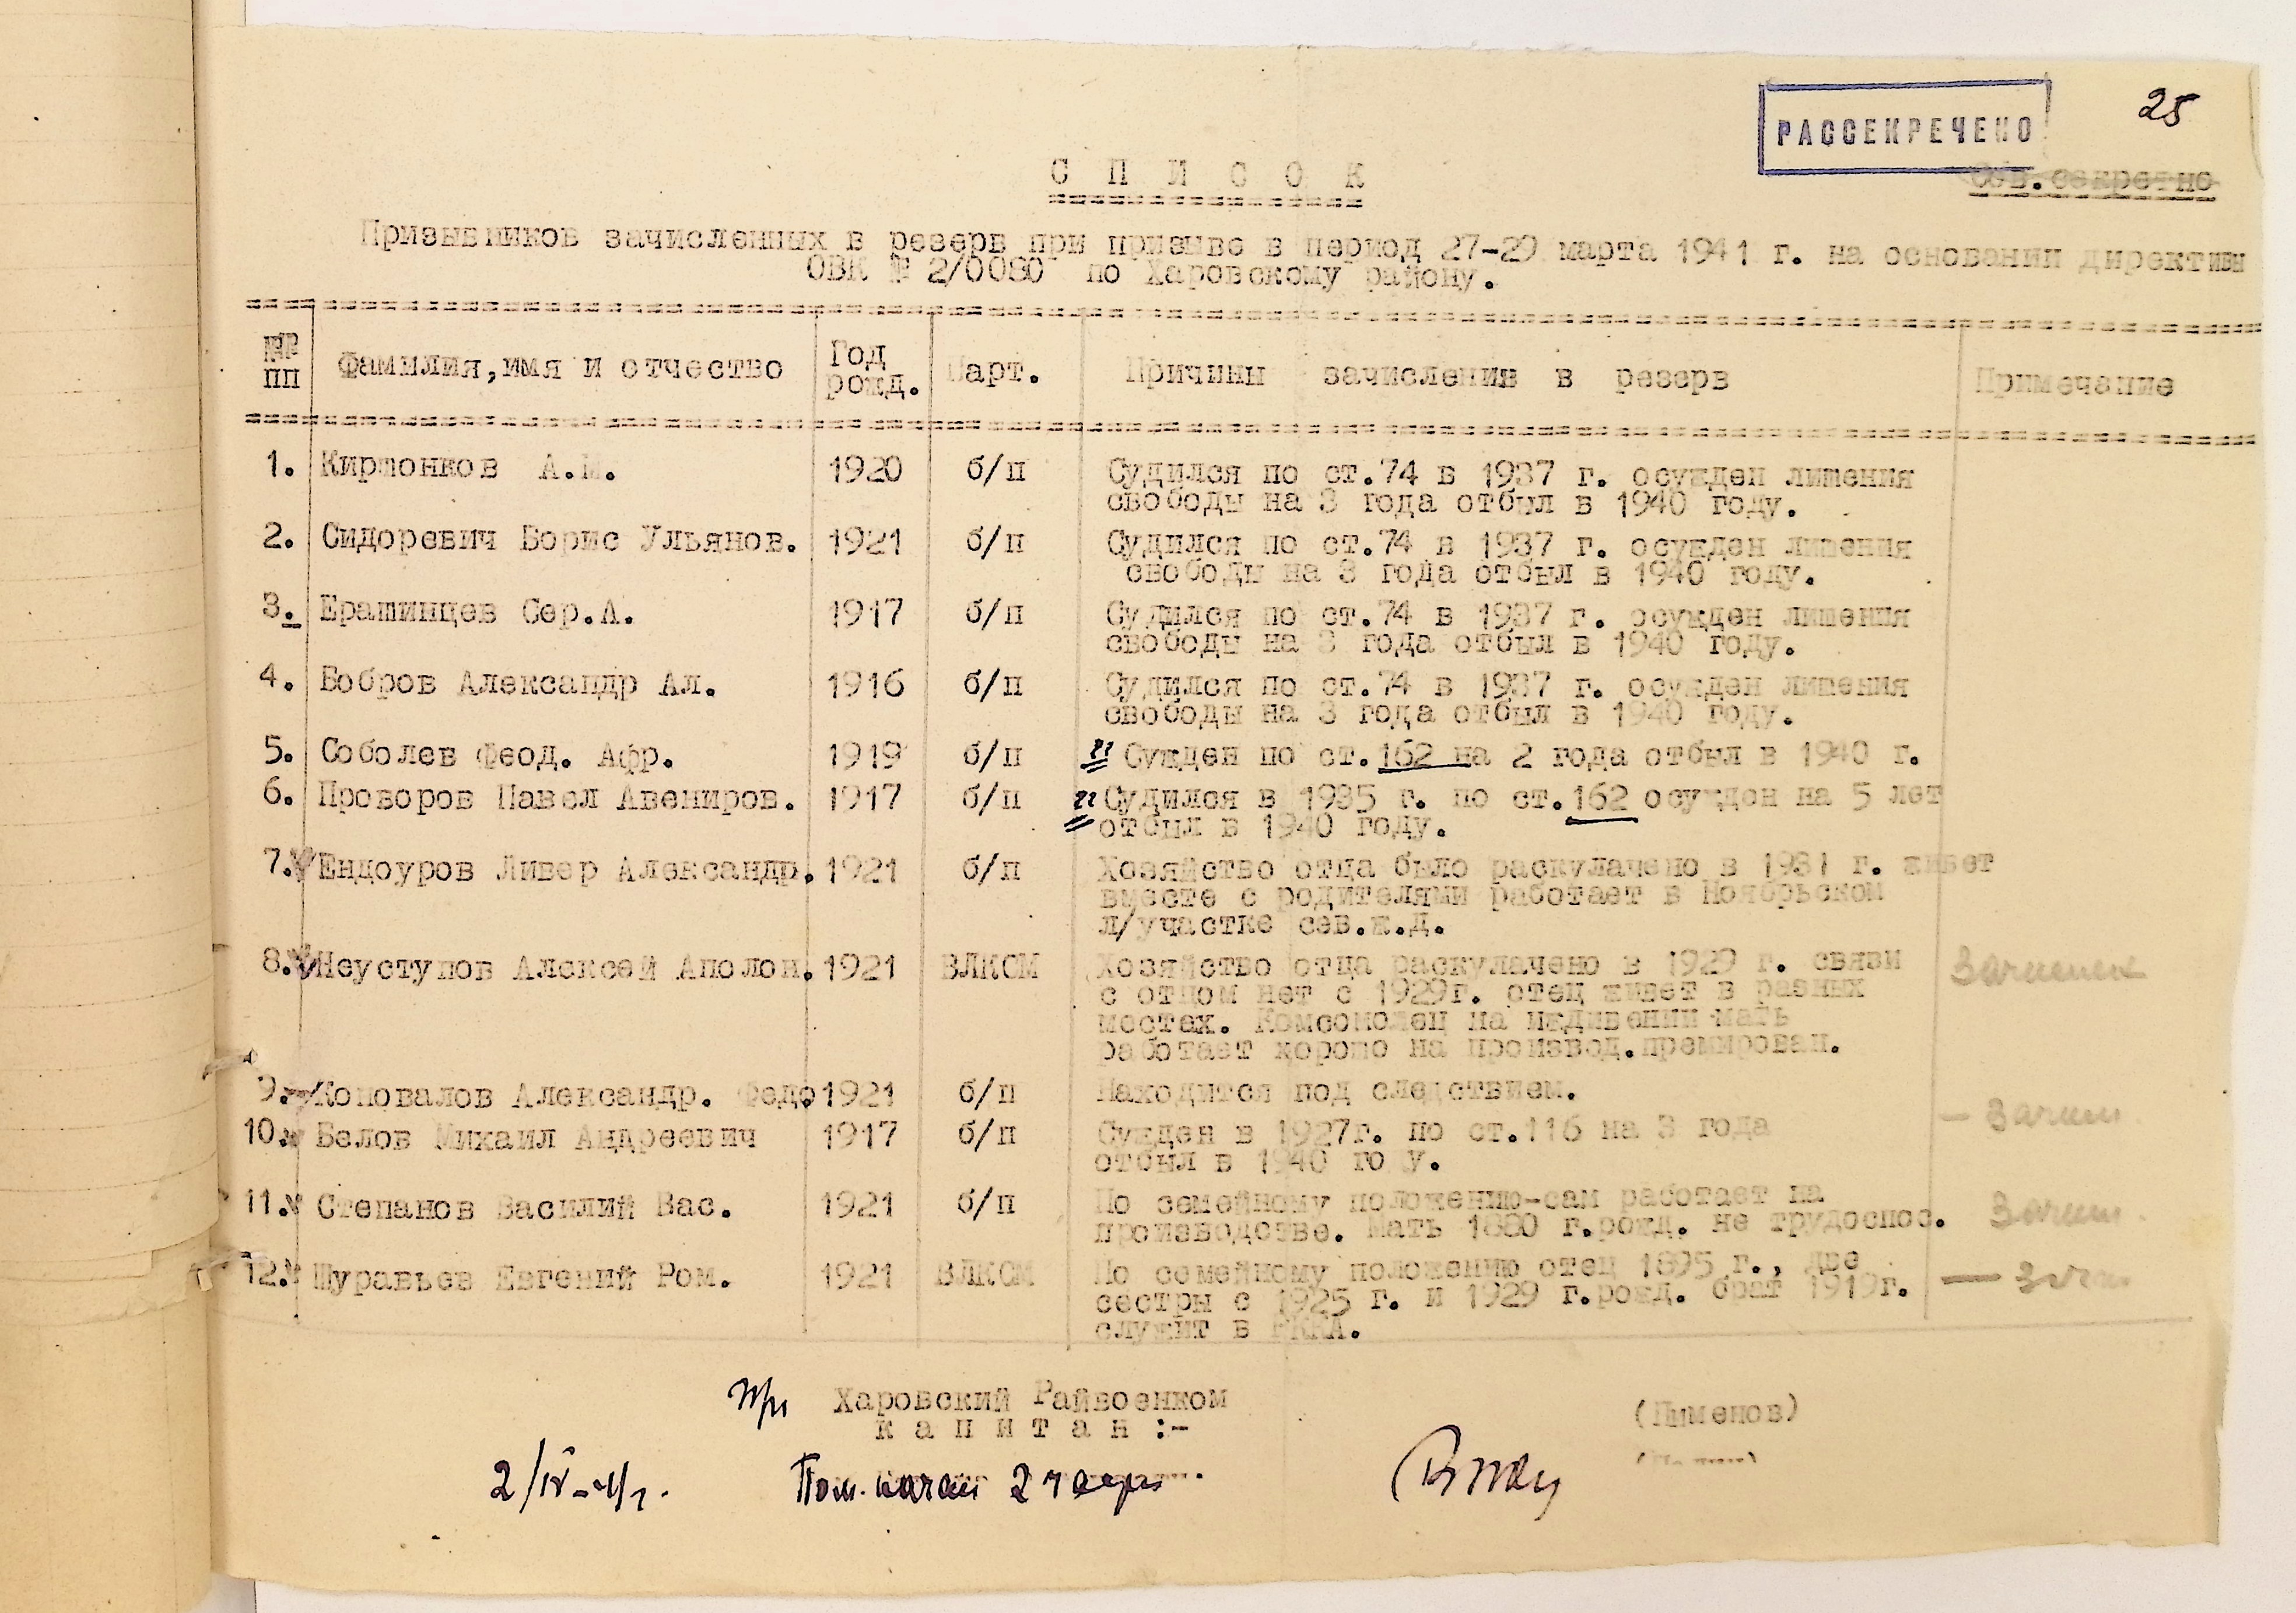 РАССЕКРЕЧЕНО
25
Сов.секретно
С П И С О К
Призывников зачисленных в резерв при призыве в период 27-29 марта 1941 г. на основании директивы
ОВК № 2/0080 по Харовскому району.
№№ пп Фамилия,имя и отчество Год рожд. Парт. Причины зачисления в резерв Примечание
1. Кирпонков А.М. 1920 б/п Судился по ст.74 в 1937 г. осужден лишения
свободы на 3 года отбыл в 1940 году.
2. Сидоревич Борис Ульянов. 1921 б/п Судился по ст.74 в 1937 г. осужден лишения
свободы на 3 года отбыл в 1940 году.
3. Ерашинцев Сер.А. 1917 б/п Судился по ст.74 в 1937 г. осужден лишения
свободы на 3 года отбыл в 1940 году.
4. Бобров Александр Ал. 1916 б/п Судился по ст.74 в 1937 г. осужден лишения
свободы на 3 года отбыл в 1940 году.
5. Соболев Феод. Афр. 1919 б/п Сужден по ст.162 на 2 года отбыл в 1940 г.
6. Проворов Павел Авениров. 1917 б/п Судился в 1935 г. по ст.162 осужден на 5 лет
отбыл в 1940 году.
7. Ендоуров Ливер Александр. 1921 б/п Хозяйство отца было раскулачено в 1931 г. живет
вместе с родителями работает в Ноябрьском
л/участке сев.ж.д.
8. Неуступов Алексей Аполон. 1921 ВЛКСМ Хозяйство отца раскулачено в 1929 г. связи
с отцом нет с 1929г. отец живет в разных
местах. Комсомолец на иждивении мать
работает хорошо на производ.премирован.
9. Коновалов Александр. Федо 1921 б/п Находится под следствием.
10. Белов Михаил Андреевич 1917 б/п Сужден в 1927г. по ст.116 на 3 года
отбыл в 1940 го у.
11. Степанов Василий Вас. 1921 б/п По семейному положению-сам работает на
производстве. Мать 1880 г.рожд. не трудоспос.
12. Шуравьев Евгений Ром. 1921 ВЛКСМ По семейному положению отец 1895 г., две
сестры с 1925 г. и 1929 г.рожд. брат 1919г.
служит в РККА.
Харовский Райвоенком
к а п и т а н :- (Пименов)
2/IV-41г. Пом. начал 2 части